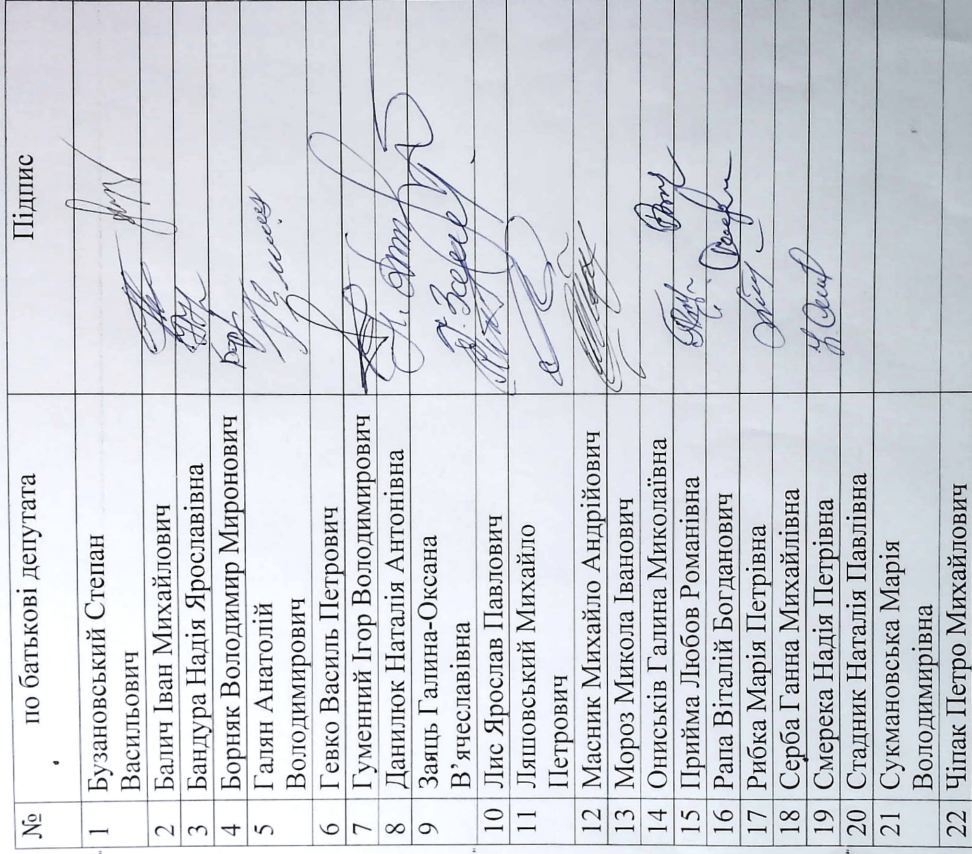 № по батькові депутата Підпис
1 Бузановський Степан
Васильович
2 Балич Іван Михайлович
3 Бандура Надія Ярославівна
4 Борняк Володимир Миронович
5 Галян Анатолій
Володимирович
6 Гевко Василь Петрович
7 Гуменний Ігор Володимирович
8 Данилюк Наталія Антонівна
9 Заяць Галина-Оксана
В’ячеславівна
10 Лис Ярослав Павлович
11 Ляшовський Михайло
Петрович
12 Масник Михайло Андрійович
13 Мороз Микола Іванович
14 Ониськів Галина Миколаївна
15 Прийма Любов Романівна
16 Рапа Віталій Богданович
17 Рибка Марія Петрівна
18 Серба Ганна Михайлівна
19 Смерека Надія Петрівна
20 Стадник Наталія Павлівна
21 Сукмановська Марія
Володимирівна
22 Чіпак Петро Михайлович